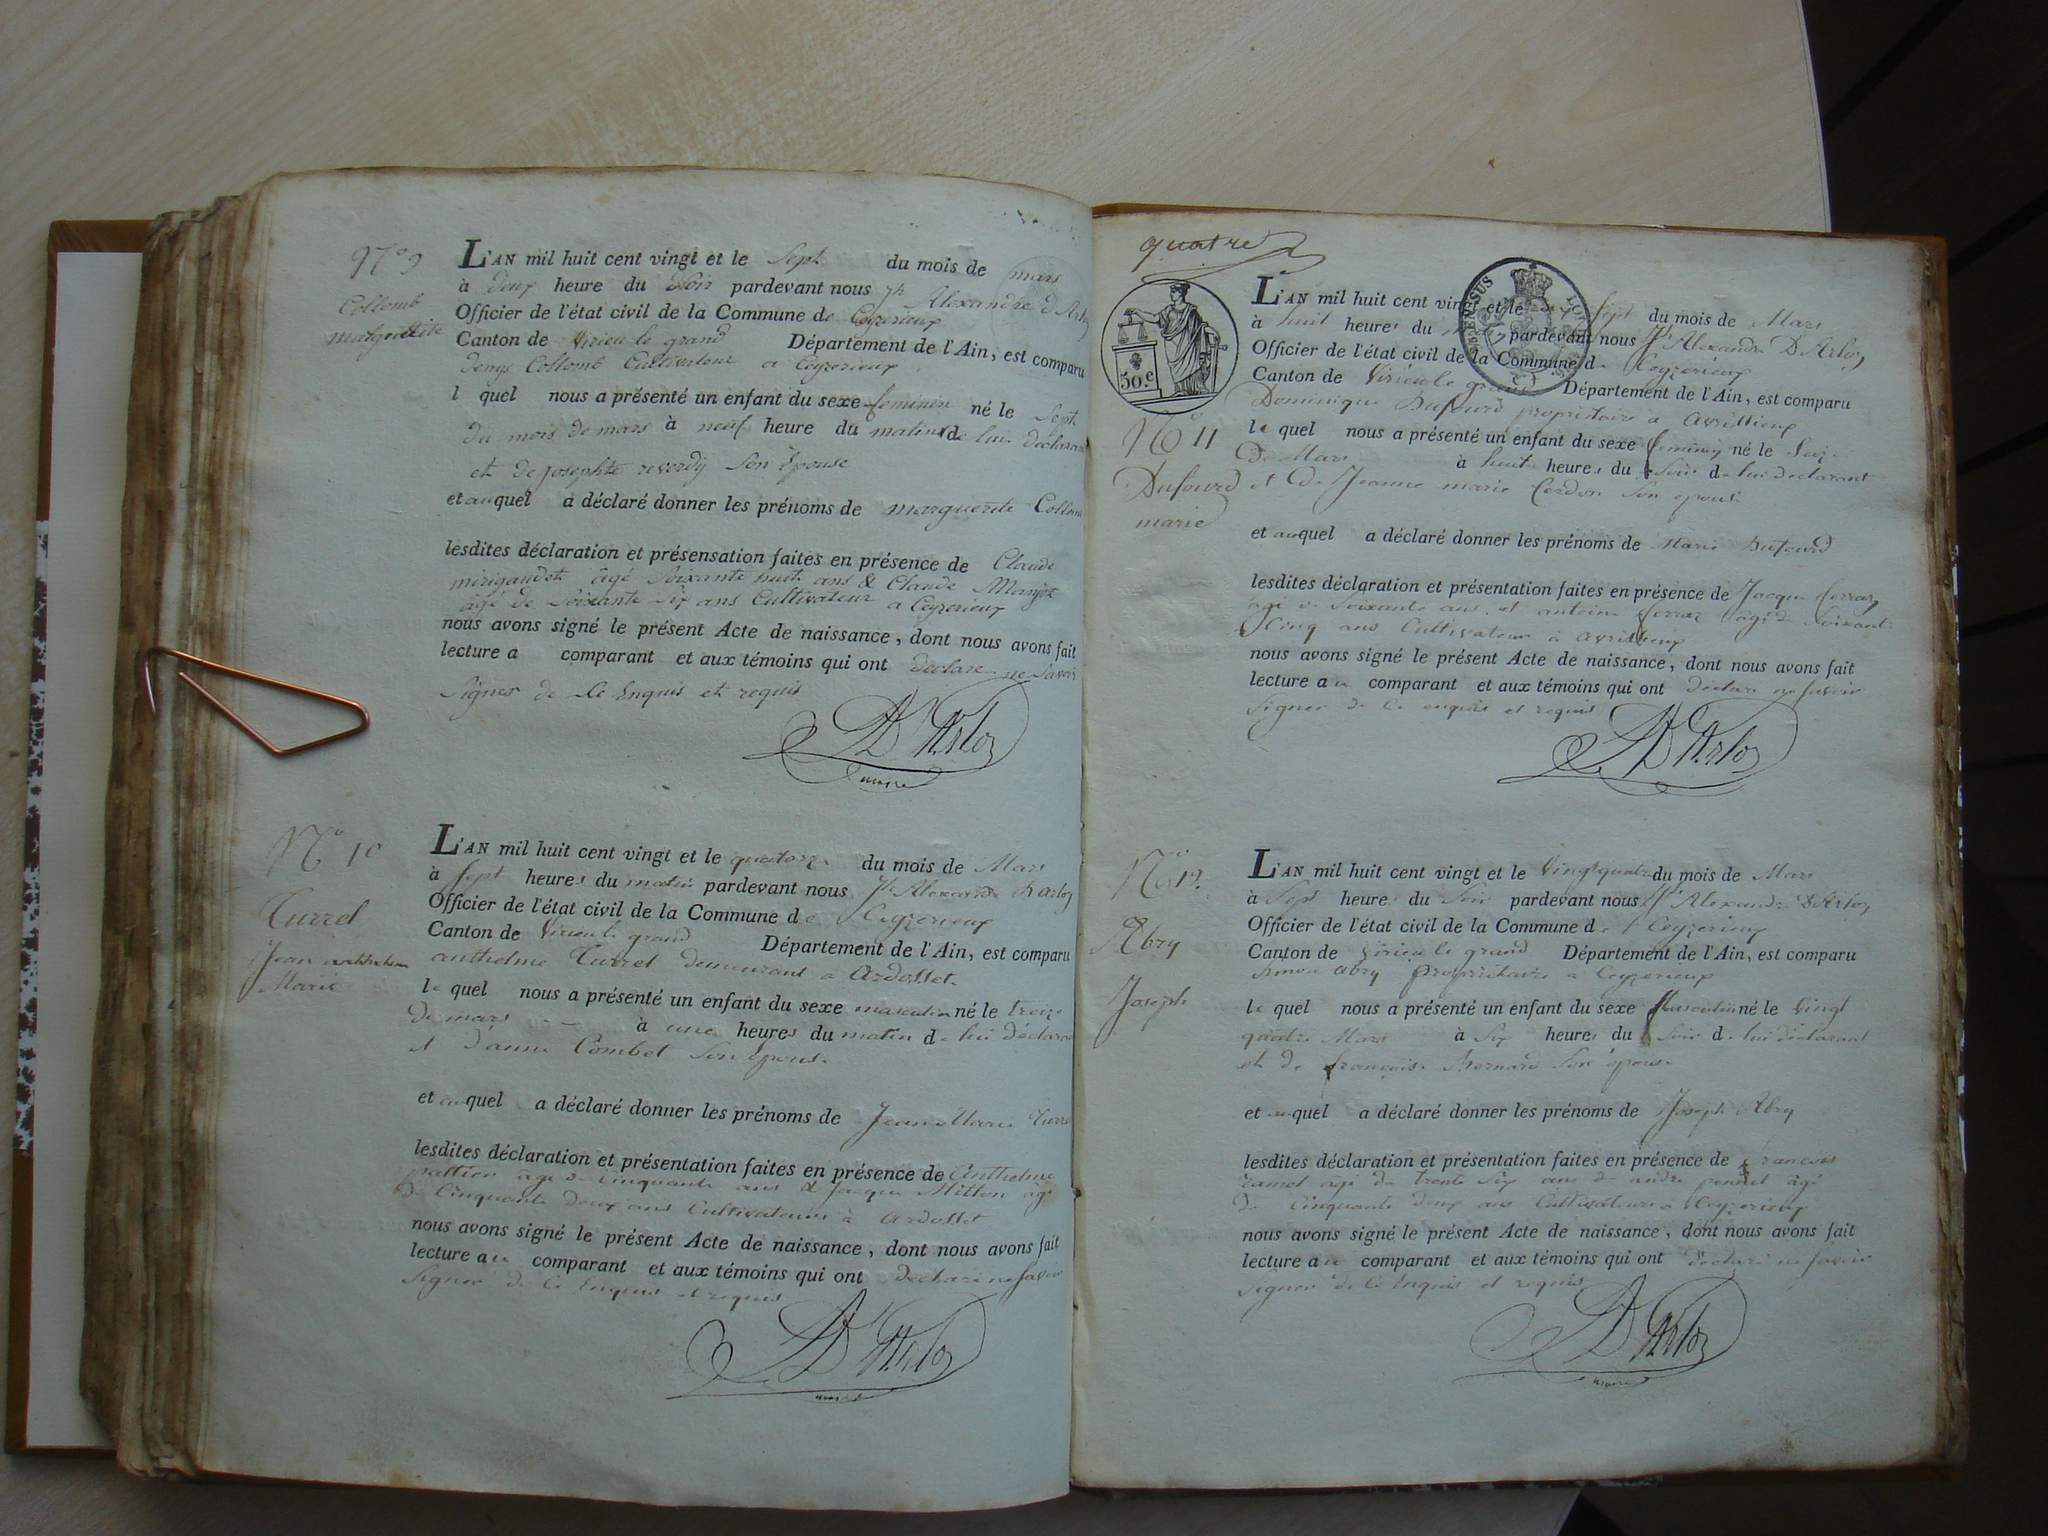 N.o 9
Collomb
marguerite
L'AN mil huit cent vingt et le Sept du mois de mars
à deux heure du Soir pardevant nous Jh Alexandre d'Arloz
Officier de l'état civil de la Commune de Ceyzerieux
Canton de Virieu le grand Département de l'Ain, est comparu
denys Collomb Cultivateur a Ceyzerieux
l quel nous a présenté un enfant du sexe feminin né le Sept
du mois de mars à neuf heure du matin de lui déclarant
et de josephte reverdy Son Epouse
et auquel a déclaré donner les prénoms de marguerite Collomb
lesdites déclaration et présensation faites en présence de Claude
mirigaudet âgé Soixante huit ans & Claude
âgé de Soixante Six ans Cultivateur a Ceyzerieux
nous avons signé le présent Acte de naissance, dont nous avons fait
lecture a comparant et aux témoins qui ont declare ne Savoir
Signer de Ce Enquis et requis
D'Arloz
maire
N.o 10
Turrel
Jean anthelme
Marie
L'AN mil huit cent vingt et le quatorze du mois de Mars
à Sept heures du matin pardevant nous Jh Alexandre Darloz
Officier de l'état civil de la Commune de Ceyzerieux
Canton de Virieu le grand Département de l'Ain, est comparu
anthelme Turrel demeurant a Ardosset
le quel nous a présenté un enfant du sexe masculin né le treize
de mars à une heures du matin de lui déclarant
et d'anne Combet Son Epouse
et auquel a déclaré donner les prénoms de Jean Marie Turrel
lesdites déclaration et présentation faites en présence de Anthelme
pattier âgé de Cinquante ans & Jacques Mitton âgé
de Cinquante deux ans Cultivateurs à Ardosset
nous avons signé le présent Acte de naissance, dont nous avons fait
lecture au comparant et aux témoins qui ont declaré ne Savoir
Signer de Ce Enquis et requis
D'Arloz
maire
quatre
50.c
N.o 11
Dufourd
marie
L'AN mil huit cent vingt et le Sept du mois de Mars
à huit heures du pardevant nous Jh Alexandre D'Arloz
Officier de l'état civil de la Commune de Ceyzerieux
Canton de Virieu le grand Département de l'Ain, est comparu
Dominique Dufourd proprietaire a Avrissieux
le quel nous a présenté un enfant du sexe feminin né le Seize
De Mars à huit heures du Soir de lui declarant
et de Jeanne marie Cerdon Son epouse
et auquel a déclaré donner les prénoms de Marie Dufourd
lesdites déclaration et présentation faites en présence de Jacque Ferraz
âgé de Soixante ans et antoine ferraz agé de Soixante
Cinq ans Cultivateur à avrissieux
nous avons signé le présent Acte de naissance, dont nous avons fait
lecture au comparant et aux témoins qui ont declaré ne Savoir
Signer de Ce enquis et requis
D'Arloz
N.o 12
Abry
Joseph
L'AN mil huit cent vingt et le Vingtquatre du mois de Mars
à Sept heures du Soir pardevant nous Jh Alexandre D'Arloz
Officier de l'état civil de la Commune de Ceyzerieux
Canton de Virieu le grand Département de l'Ain, est comparu
Simon Abry proprietaire a Ceyzerieux
le quel nous a présenté un enfant du sexe Masculin né le Vingt
quatre Mars à Six heures du Soir de lui déclarant
et de françoise Bernard Son épouse
et auquel a déclaré donner les prénoms de Joseph Abry
lesdites déclaration et présentation faites en présence de françois
agé de trente Six ans & andre âgé
de Cinquante deux ans Cultivateurs a Ceyzerieux
nous avons signé le présent Acte de naissance, dont nous avons fait
lecture au comparant et aux témoins qui ont declaré ne Savoir
Signer de Ce Enquis et requis
D'Arloz
maire